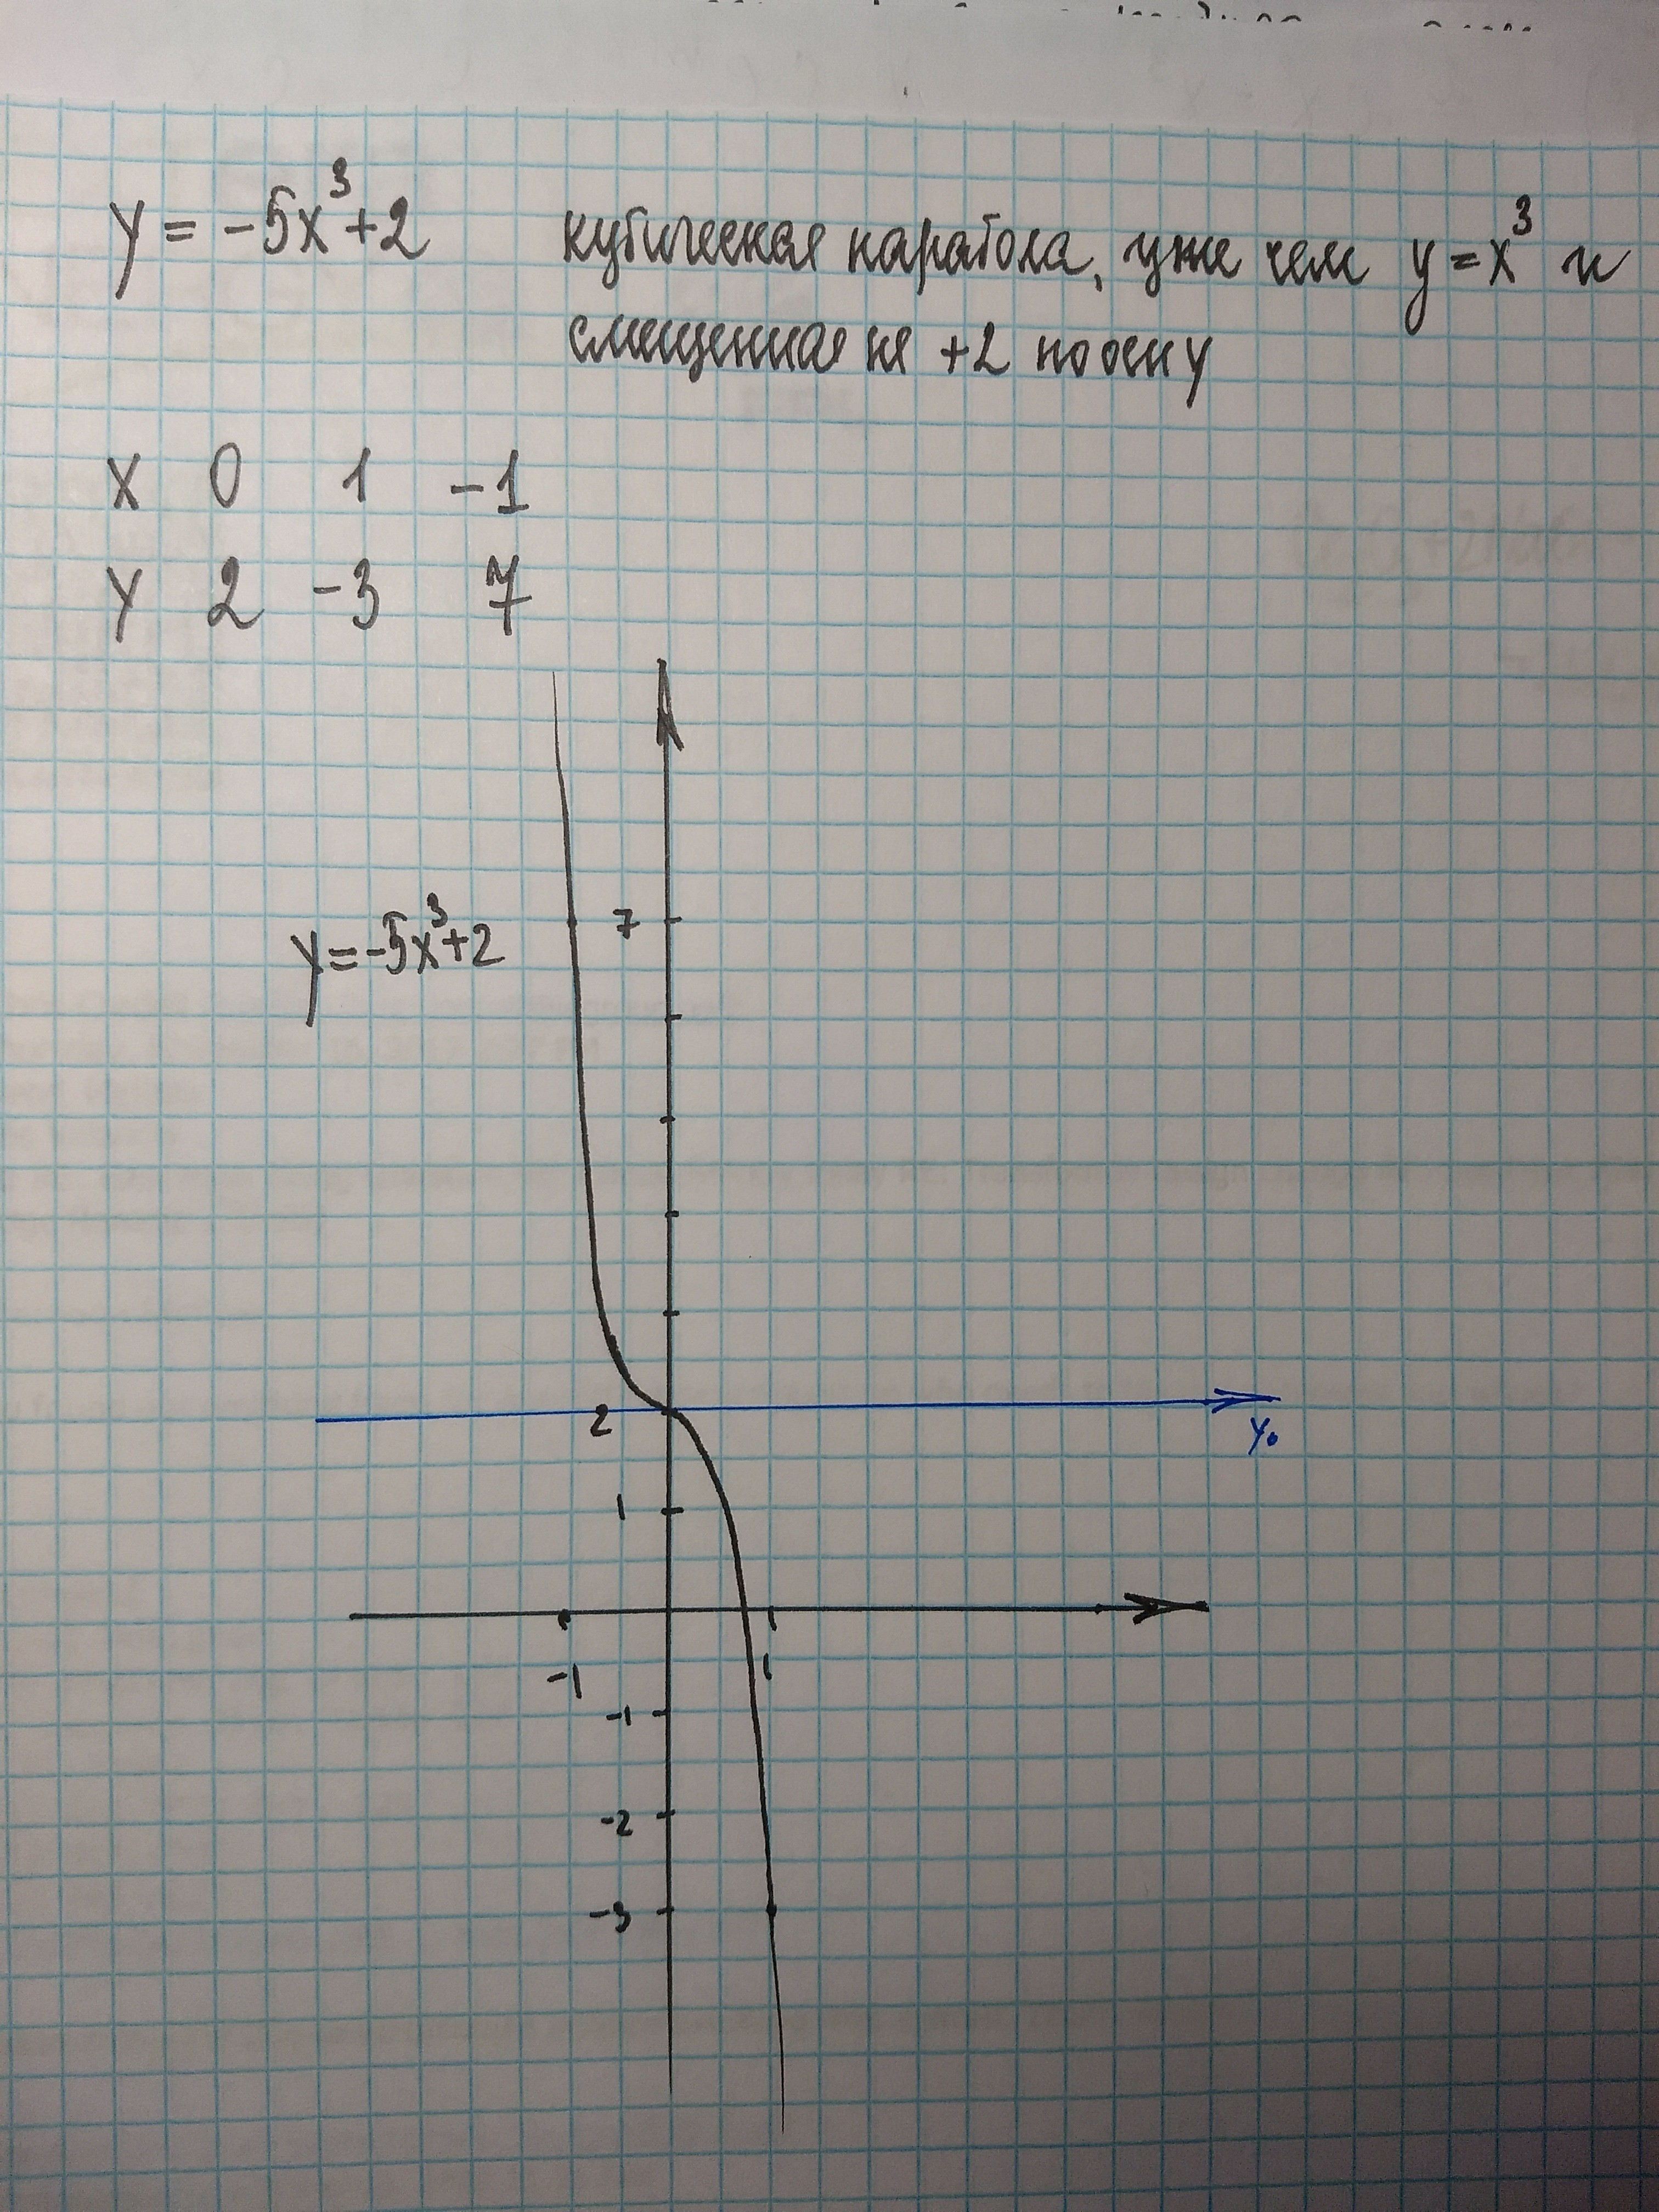 y = -5x³+2 кубическая парабола, уже чем y = x³ и
смещенная на +2 по оси y
x 0 1 -1
y 2 -3 7
7
y = -5x³+2
2
y₀
1
-1 1
-1
-2
-3